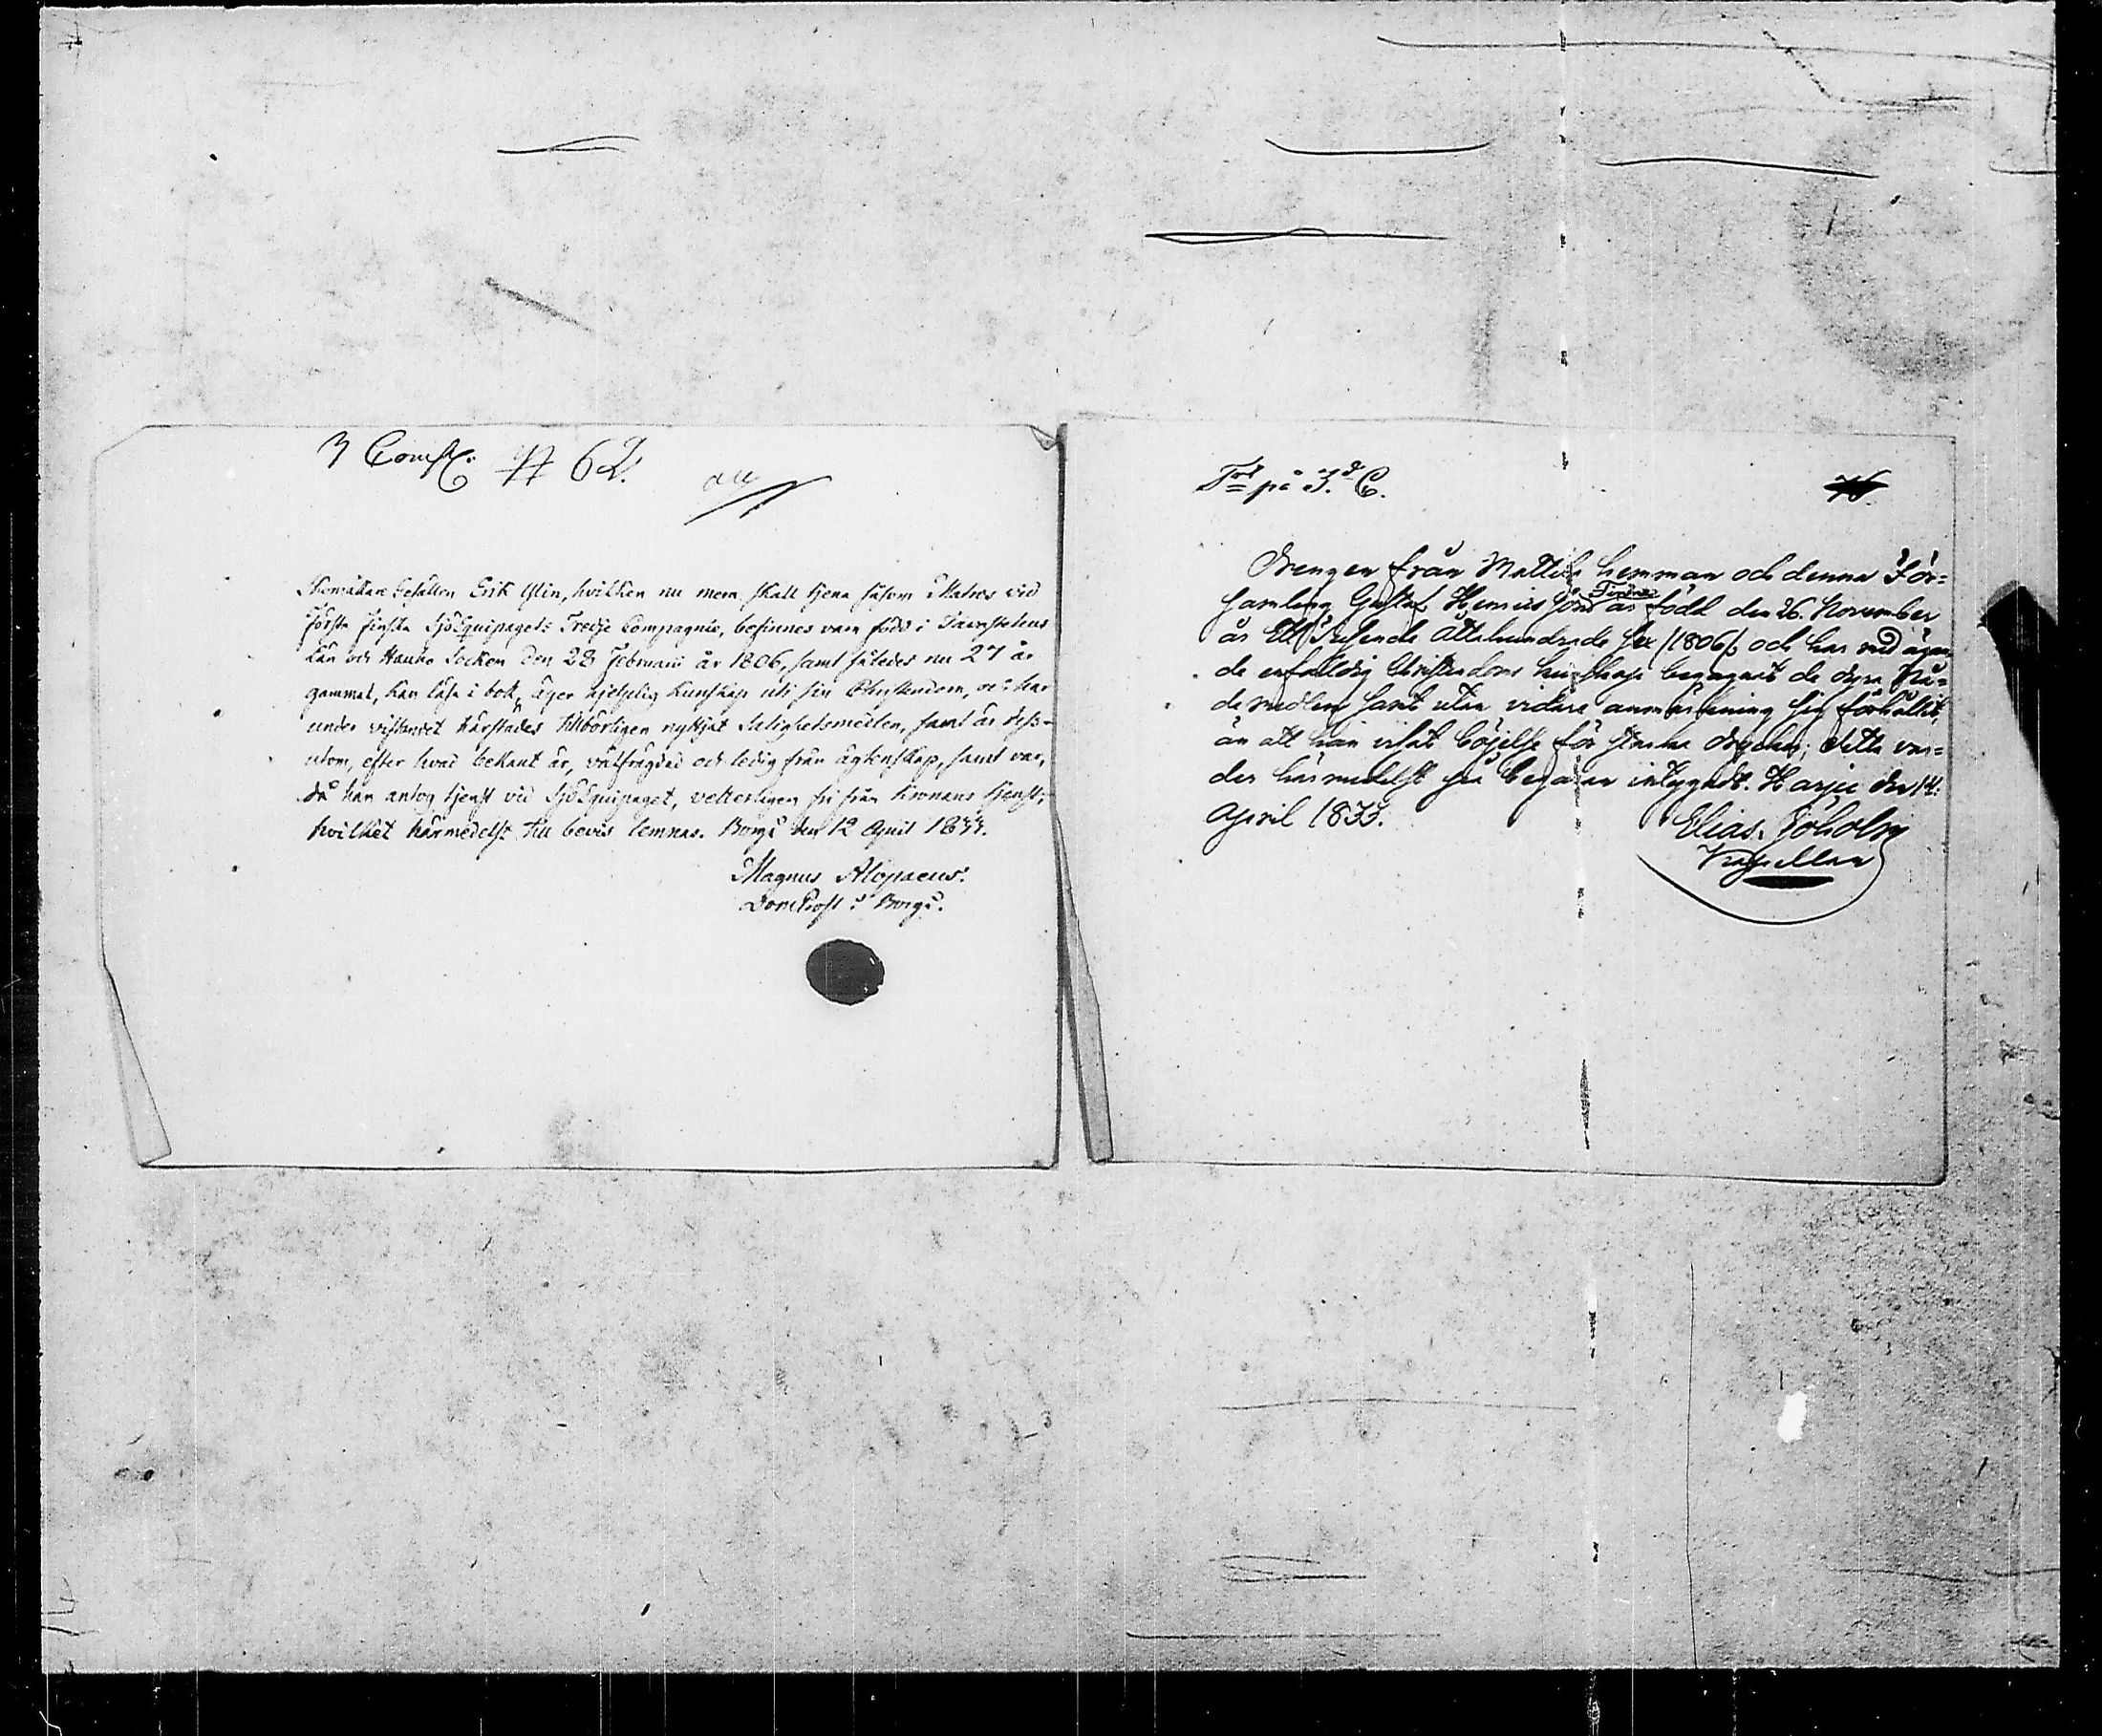 3 Comp: № 62.
Skomakare Gesällen Erik Ulin, hvilken nu mera skall tjena såsom Matros vid
Första Finska SjöEquipagets Tredje Compagnie, befinnes vara född i Tavastehus
Län och Hauho Socken den 28 Februarii år 1806, samt således nu 27 år
gammal, kan läsa i bok, äger hjelplig kunskap uti sin Christendom, och har
under vistandet härstädes tillbörligen nyttjat Salighetsmedlen, samt är dess-
utom, efter hvad bekant är, välfrägdad och ledig från ägtenskap, samt var,
då han antog tjenst vid SjöEquipaget, vederligen fri från Kronans tjenst;
hvilket härmedelst till bevis lemnas. Borgå den 12 April 1833.
Magnus Alopaeus.
DomProst i Borgå.
på 3.d C.
Drengen från Mattila hemman och denna För=
samling Gustaf Henricsson är född den 26. November
år Ett Tusende Åttahundrade Sex /1806/. och har med ägan-
de enfaldig Christendoms kunskap begagnat de dyra Nå=
demedlen samt utan vidare anmärkning sig förhållit,
än att han visat böjelse för starka drycker; detta var=
der härmedelst på begäran intygadt. Karjis den 14.
April 1833.
Elias Söholm
Kapellan